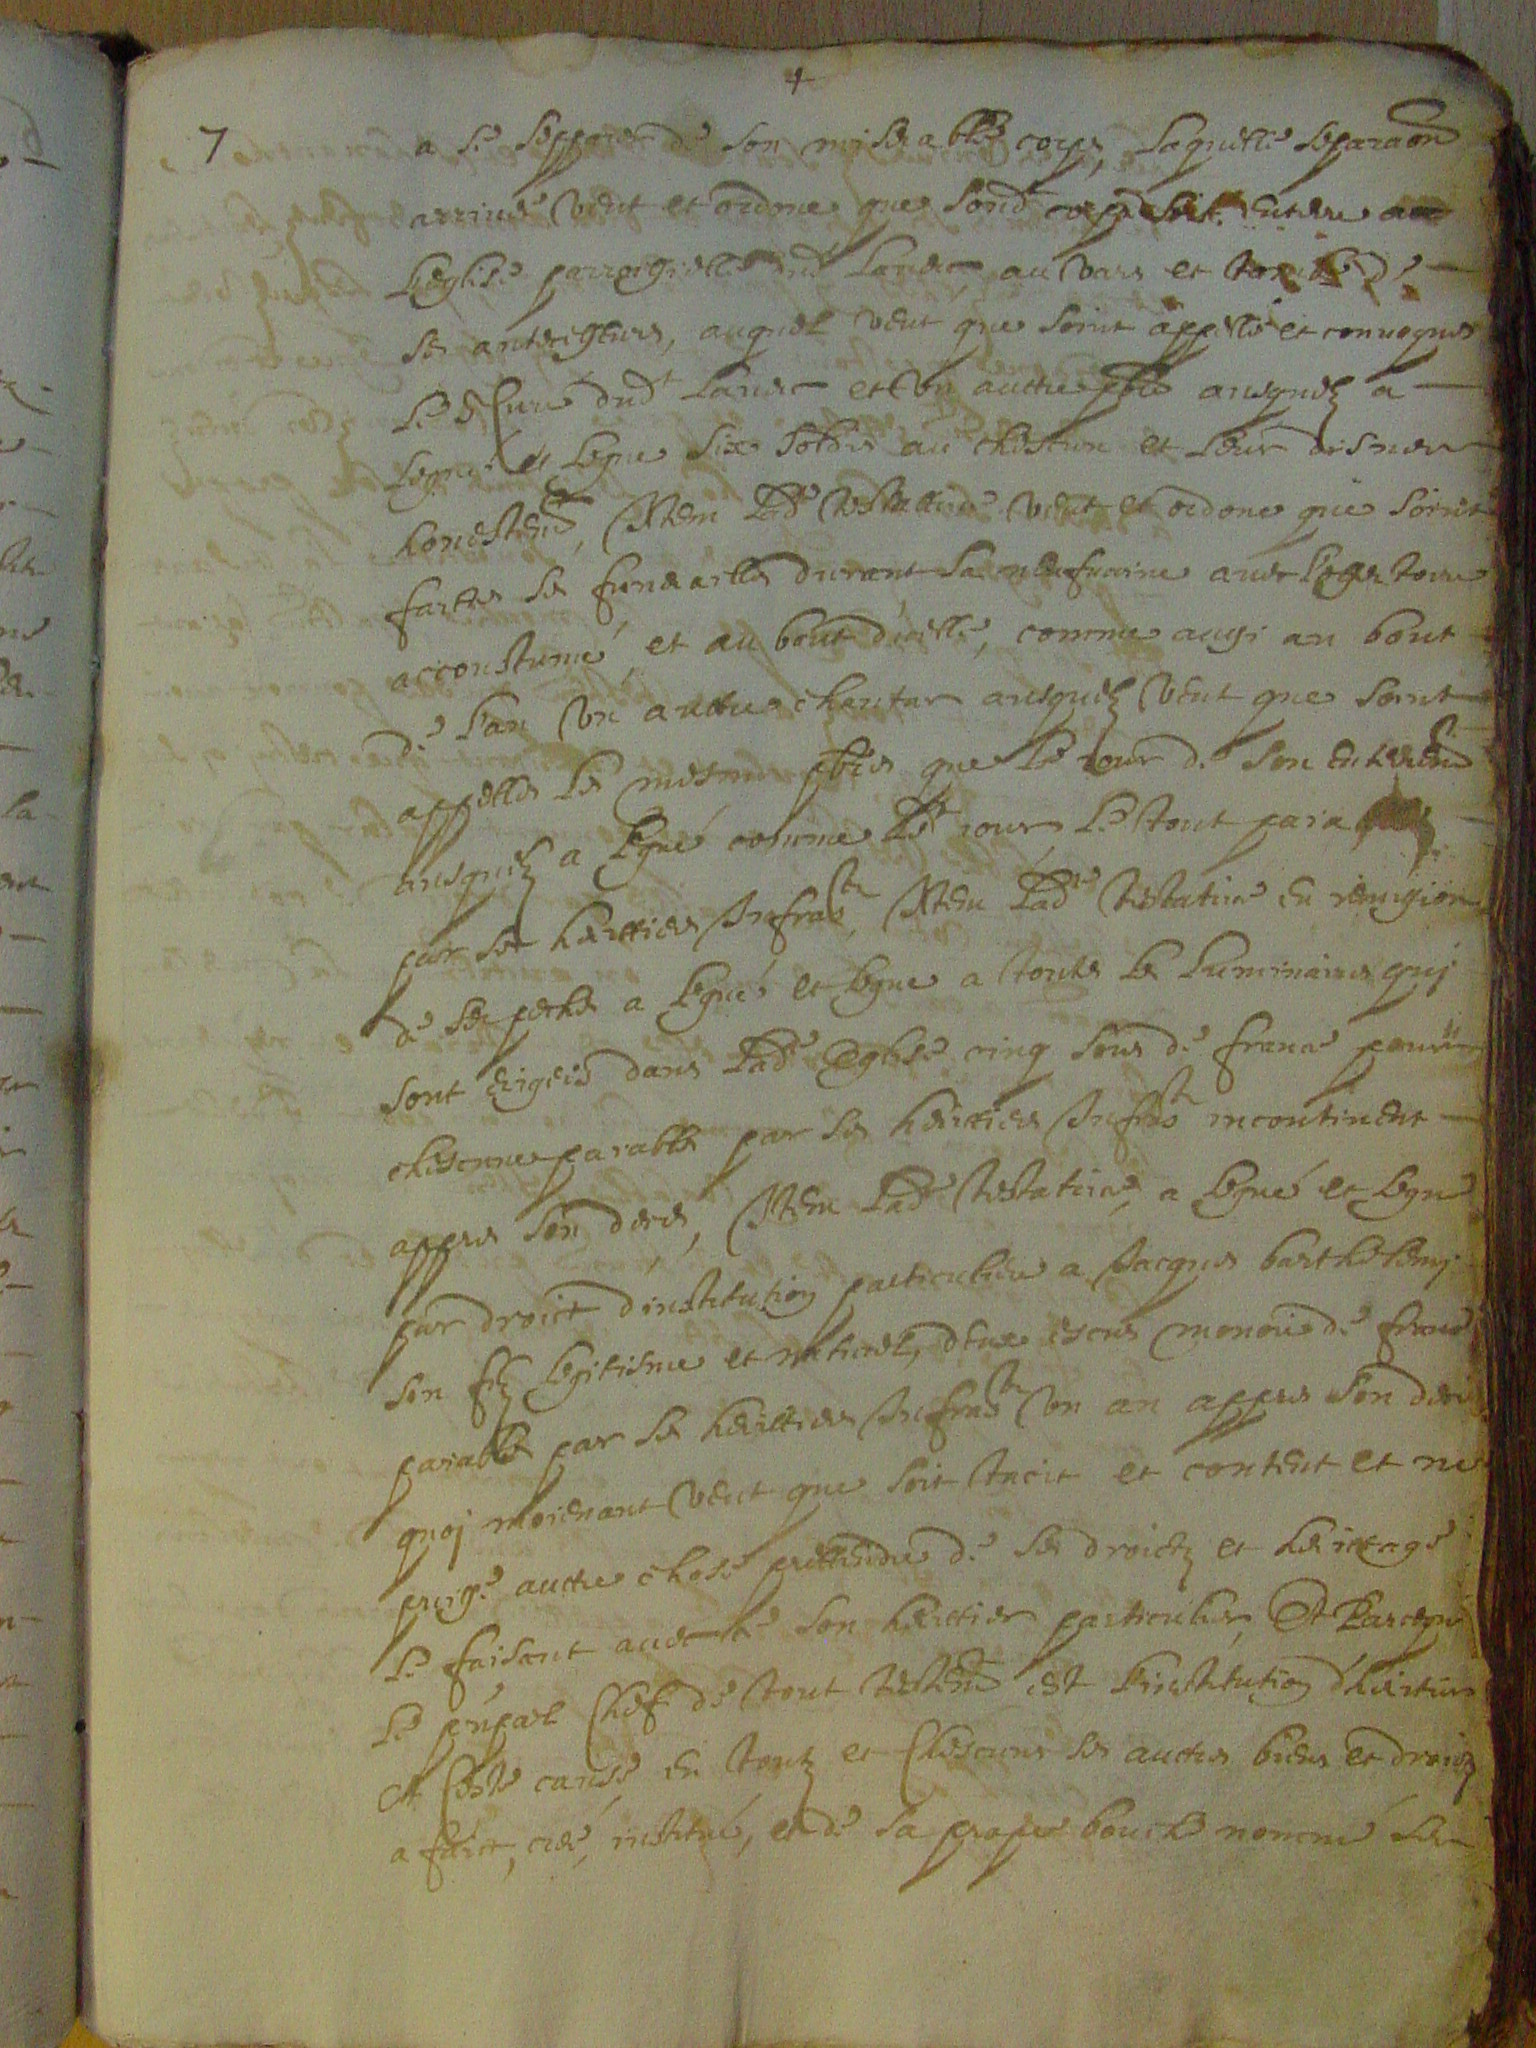 7
a se seppaver de son miserable corps, laquelle separaon
arrivee veut et ordone que sond corps soit enterre a
Leglise parroigielle dud Lanuc au vars et tombe de
ses antecesseurs, auquel veut que soint appellé et convoqués
Le Sr Cure dud Lanuc et un auttre pbre ausquelz a
Legué et Legue six soldz au chescun et leur disner
honestemt, Ittem Lade testattrice veut et ordone que soint
faittes ses funerailles durant sa neufvaine avec Loffertoire
accoustumé, et au bout dicelle, comme aussi au bout
de Lan un auttre chantar ausquelz veut que soint
appellés les mesmes pbres que Le iour de son enterremt
ausquelz a Legué comme Led iour Le tout paia
par ses herittiers Infrascr, Ittem Lade testatrice en remission
de ses peches a Legué et legue a toutes les luminaires quj
sont erigées dans Lade Eglise cinq sous de france pour
chescune paiable par ses herittiers Infrascr incontinent
appres son deces, Ittem Lade testatrice, a Legué et Legue
par droict dinstitution particuliere a Jacques barthelemj
son filz legitisme et naturel, deux escus monoie de france
paiable par ses herittiers Infrascr un an appres son deces
quoj moienant veut que soit tacit et content et ne
puisse auttre chose prettendre de ses droictz et herittage
Le faisant avec ce son herittier particulier, Et Parceque
Le pnpal Chef de tout testemt est Linstitution dherittier
A Ceste cause en toutz et Chescuns ses auttres biens et droictz
a faict, creé, institué, et de sa propre bouche nommé ses